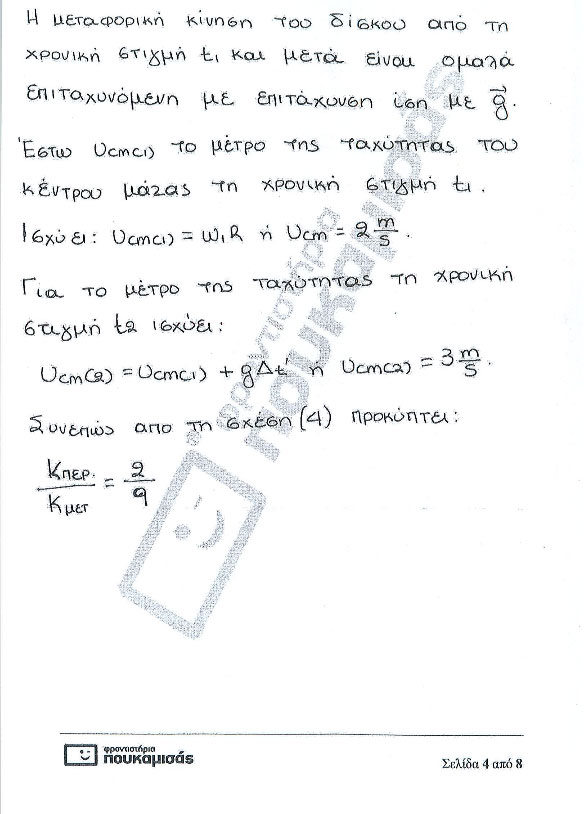 Η μεταφορική κίνηση του δίσκου από τη
χρονική στιγμή t₁ και μετά είναι ομαλά
επιταχυνόμενη με επιτάχυνση ίση με g⃗.
Έστω υcm(1) το μέτρο της ταχύτητας του
κέντρου μάζας τη χρονική στιγμή t₁.
Ισχύει: υcm(1) = ω₁R ή υcm = 2 m/s.
Για το μέτρο της ταχύτητας τη χρονική
στιγμή t₂ ισχύει:
υcm(2) = υcm(1) + gΔt' ή υcm(2) = 3 m/s.
Συνεπώς από τη σχέση (4) προκύπτει:
Κπερ. / Κμετ = 2/9
φροντιστήρια
πουκαμισάς
φροντιστήρια
πουκαμισάς
Σελίδα 4 από 8